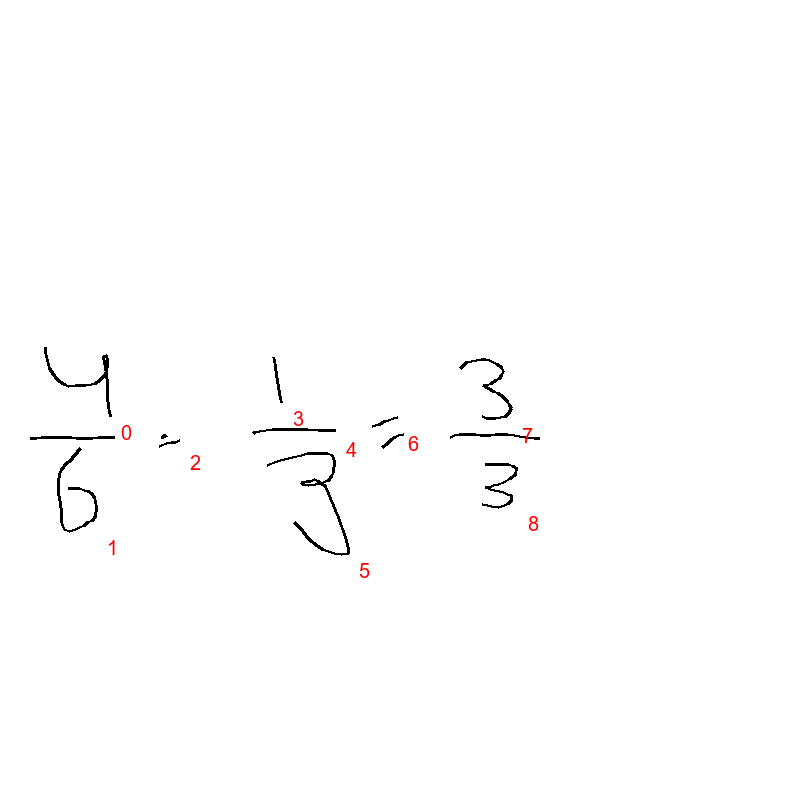 4/6 = 1/3 = 3/3
0 1 2 3 4 5 6 7 8